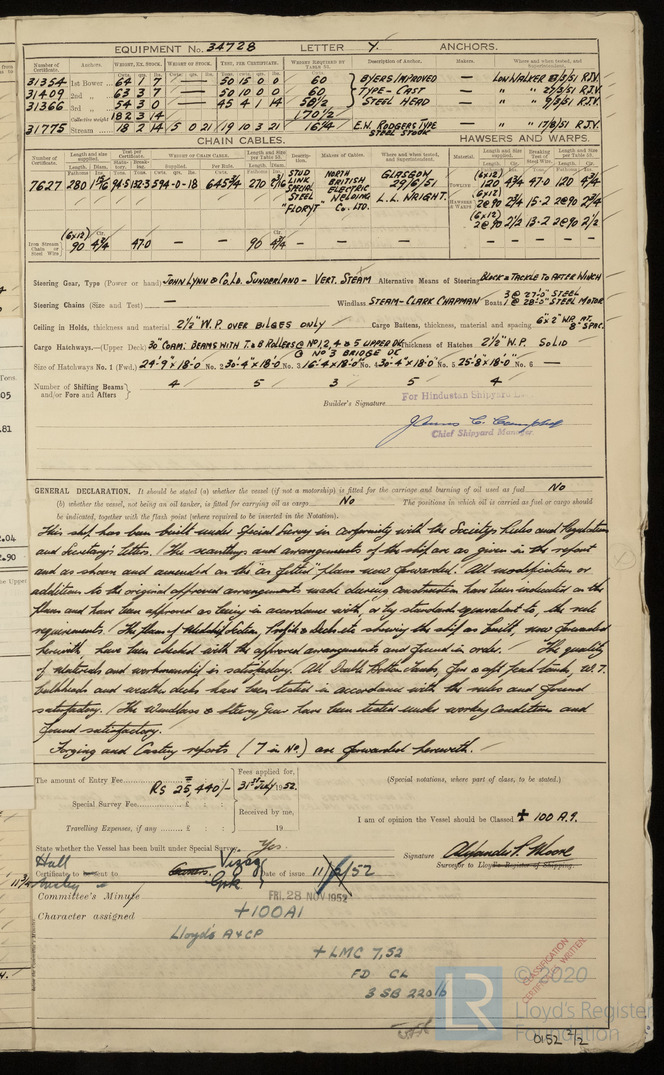 EQUIPMENT No. 34728 LETTER Y. ANCHORS.
Number of Certificate. Anchors. WEIGHT, EX. STOCK. WEIGHT OF STOCK. TEST, PER CERTIFICATE. WEIGHT REQUIRED BY TABLE 53. Description of Anchor. Makers. Where and when tested, and Superintendent.
31354 1st Bower 64 1 7 — 50 15 0 0 60 BYERS IMPROVED — LOW WALKER 5/51 R.J.V.
31409 2nd „ 63 3 7 — 50 10 0 0 60 TYPE - CAST — „ „ /5/51 R.J.V.
31366 3rd „ 54 3 0 — 45 4 1 14 50 1/2 STEEL HEAD — „ „ 9/5/51 R.J.V.
Collective weight 182 3 14 170 1/2
31775 Stream 18 2 14 5 0 21 19 10 3 21 16 1/4 E.W. RODGERS TYPE STEEL STOCK — „ „ 17/8/51 R.J.V.
CHAIN CABLES. HAWSERS AND WARPS.
Number of Certificate. Length and size supplied. Test per Certificate. WEIGHT OF CHAIN CABLE. Length and Size per Table 53. Description. Makers of Cables. Where and when tested, and Superintendent. Material. Length and Size supplied. Breaking Test of Steel Wire. Length and Size per Table 53.
7627 280 1 15/16 94·5 132·3 594-0-18 645 3/4 270 1 15/16 STUD LINK SPECIAL STEEL "FLORYT" NORTH BRITISH ELECTRIC WELDING Co. LTD. GLASGOW 29/6/51 L.L. WRIGHT.
TOWLINE (6x12) 120 4 3/4 47·0 120 4 3/4
HAWSERS & WARPS (6x12) 2@90 2 3/4 15·2 2@90 2 3/4
(6x12) 2@90 2 1/2 13·2 2@90 2 1/2
Iron Stream Chain or Steel Wire (6x12) 90 4 3/4 47·0 — — 90 4 3/4 — — — — — — — —
Steering Gear, Type (Power or hand) JOHN LYNN & Co. Ld. SUNDERLAND - VERT. STEAM Alternative Means of Steering BLOCK & TACKLE TO AFTER WINCH
Steering Chains (Size and Test) — Windlass STEAM - CLARK CHAPMAN Boats 3 @ 27'·0" STEEL 1 @ 28'·0" STEEL MOTOR
Ceiling in Holds, thickness and material 2 1/2" W.P. OVER BILGES ONLY Cargo Battens, thickness, material and spacing 6"x 2" WP. AT 8" SPAC.
Cargo Hatchways.—(Upper Deck) 30" COAM. BEAMS WITH T. & B ROLLERS @ No 1, 2, 4 & 5 UPPER DK @ No 3 BRIDGE DK Thickness of Hatches 2 1/2" W.P. SOLID
Size of Hatchways No. 1 (Fwd.) 24'-9" x 18'-0" No. 2 30'-4" x 18'·0" No. 3 16'-4" x 18'·0" No. 4 30'-4" x 18'·0" No. 5 25'-8" x 18'·0" No. 6 —
Number of Shifting Beams and/or Fore and Afters 4 5 3 5 4
For Hindustan Shipyard
Builder's Signature
James C. Campbell
Chief Shipyard Manager.
GENERAL DECLARATION. It should be stated (a) whether the vessel (if not a motorship) is fitted for the carriage and burning of oil used as fuel No
(b) whether the vessel, not being an oil tanker, is fitted for carrying oil as cargo No The positions in which oil is carried as fuel or cargo should
be indicated, together with the flash point (where required to be inserted in the Notation).
This ship has been built under Special Survey in conformity with the Society's Rules and Regulations
and Secretary's letters. The scantlings and arrangements of the ship are as given in the report
and as shown and amended on the "as fitted" plans now forwarded. All modification or
additions to the original approved arrangements made during construction have been indicated on the
plans and have been approved as being in accordance with, or by standards equivalent to, the rule
requirements. The plans of Midship Section, Profile & Decks etc showing the ship as built, now forwarded
herewith have been checked with the approved arrangements and found in order. The quality
of materials and workmanship is satisfactory. All Double Bottom Tanks, fore & aft peak tanks, W.T.
bulkheads and weather decks have been tested in accordance with the rules and found
satisfactory. The Windlass & Steering Gear have been tested under working conditions and
found satisfactory.
Forging and Casting reports (7 in No.) are forwarded herewith.
The amount of Entry Fee Rs 25,440/- Fees applied for, 31st July 1952. (Special notations, where part of class, to be stated.)
Special Survey Fee £ : : Received by me, I am of opinion the Vessel should be Classed ✠ 100 A.1.
Travelling Expenses, if any £ : : 19
State whether the Vessel has been built under Special Survey Yes.
Signature Alexander P. Moore
Surveyor to Lloyd's Register of Shipping.
Hull
Certificate to be sent to Owners. Vizag Date of issue 11/ /52
Committee's Minute FRI. 28 NOV 1952
Character assigned +100A1
Lloyd's A & CP
+ LMC 7,52
FD CL
3 SB 220 lb
CLASSIFICATION CERTIFICATE WRITTEN.
© 2020
LR
Lloyd's Register
Foundation
0152 2/2